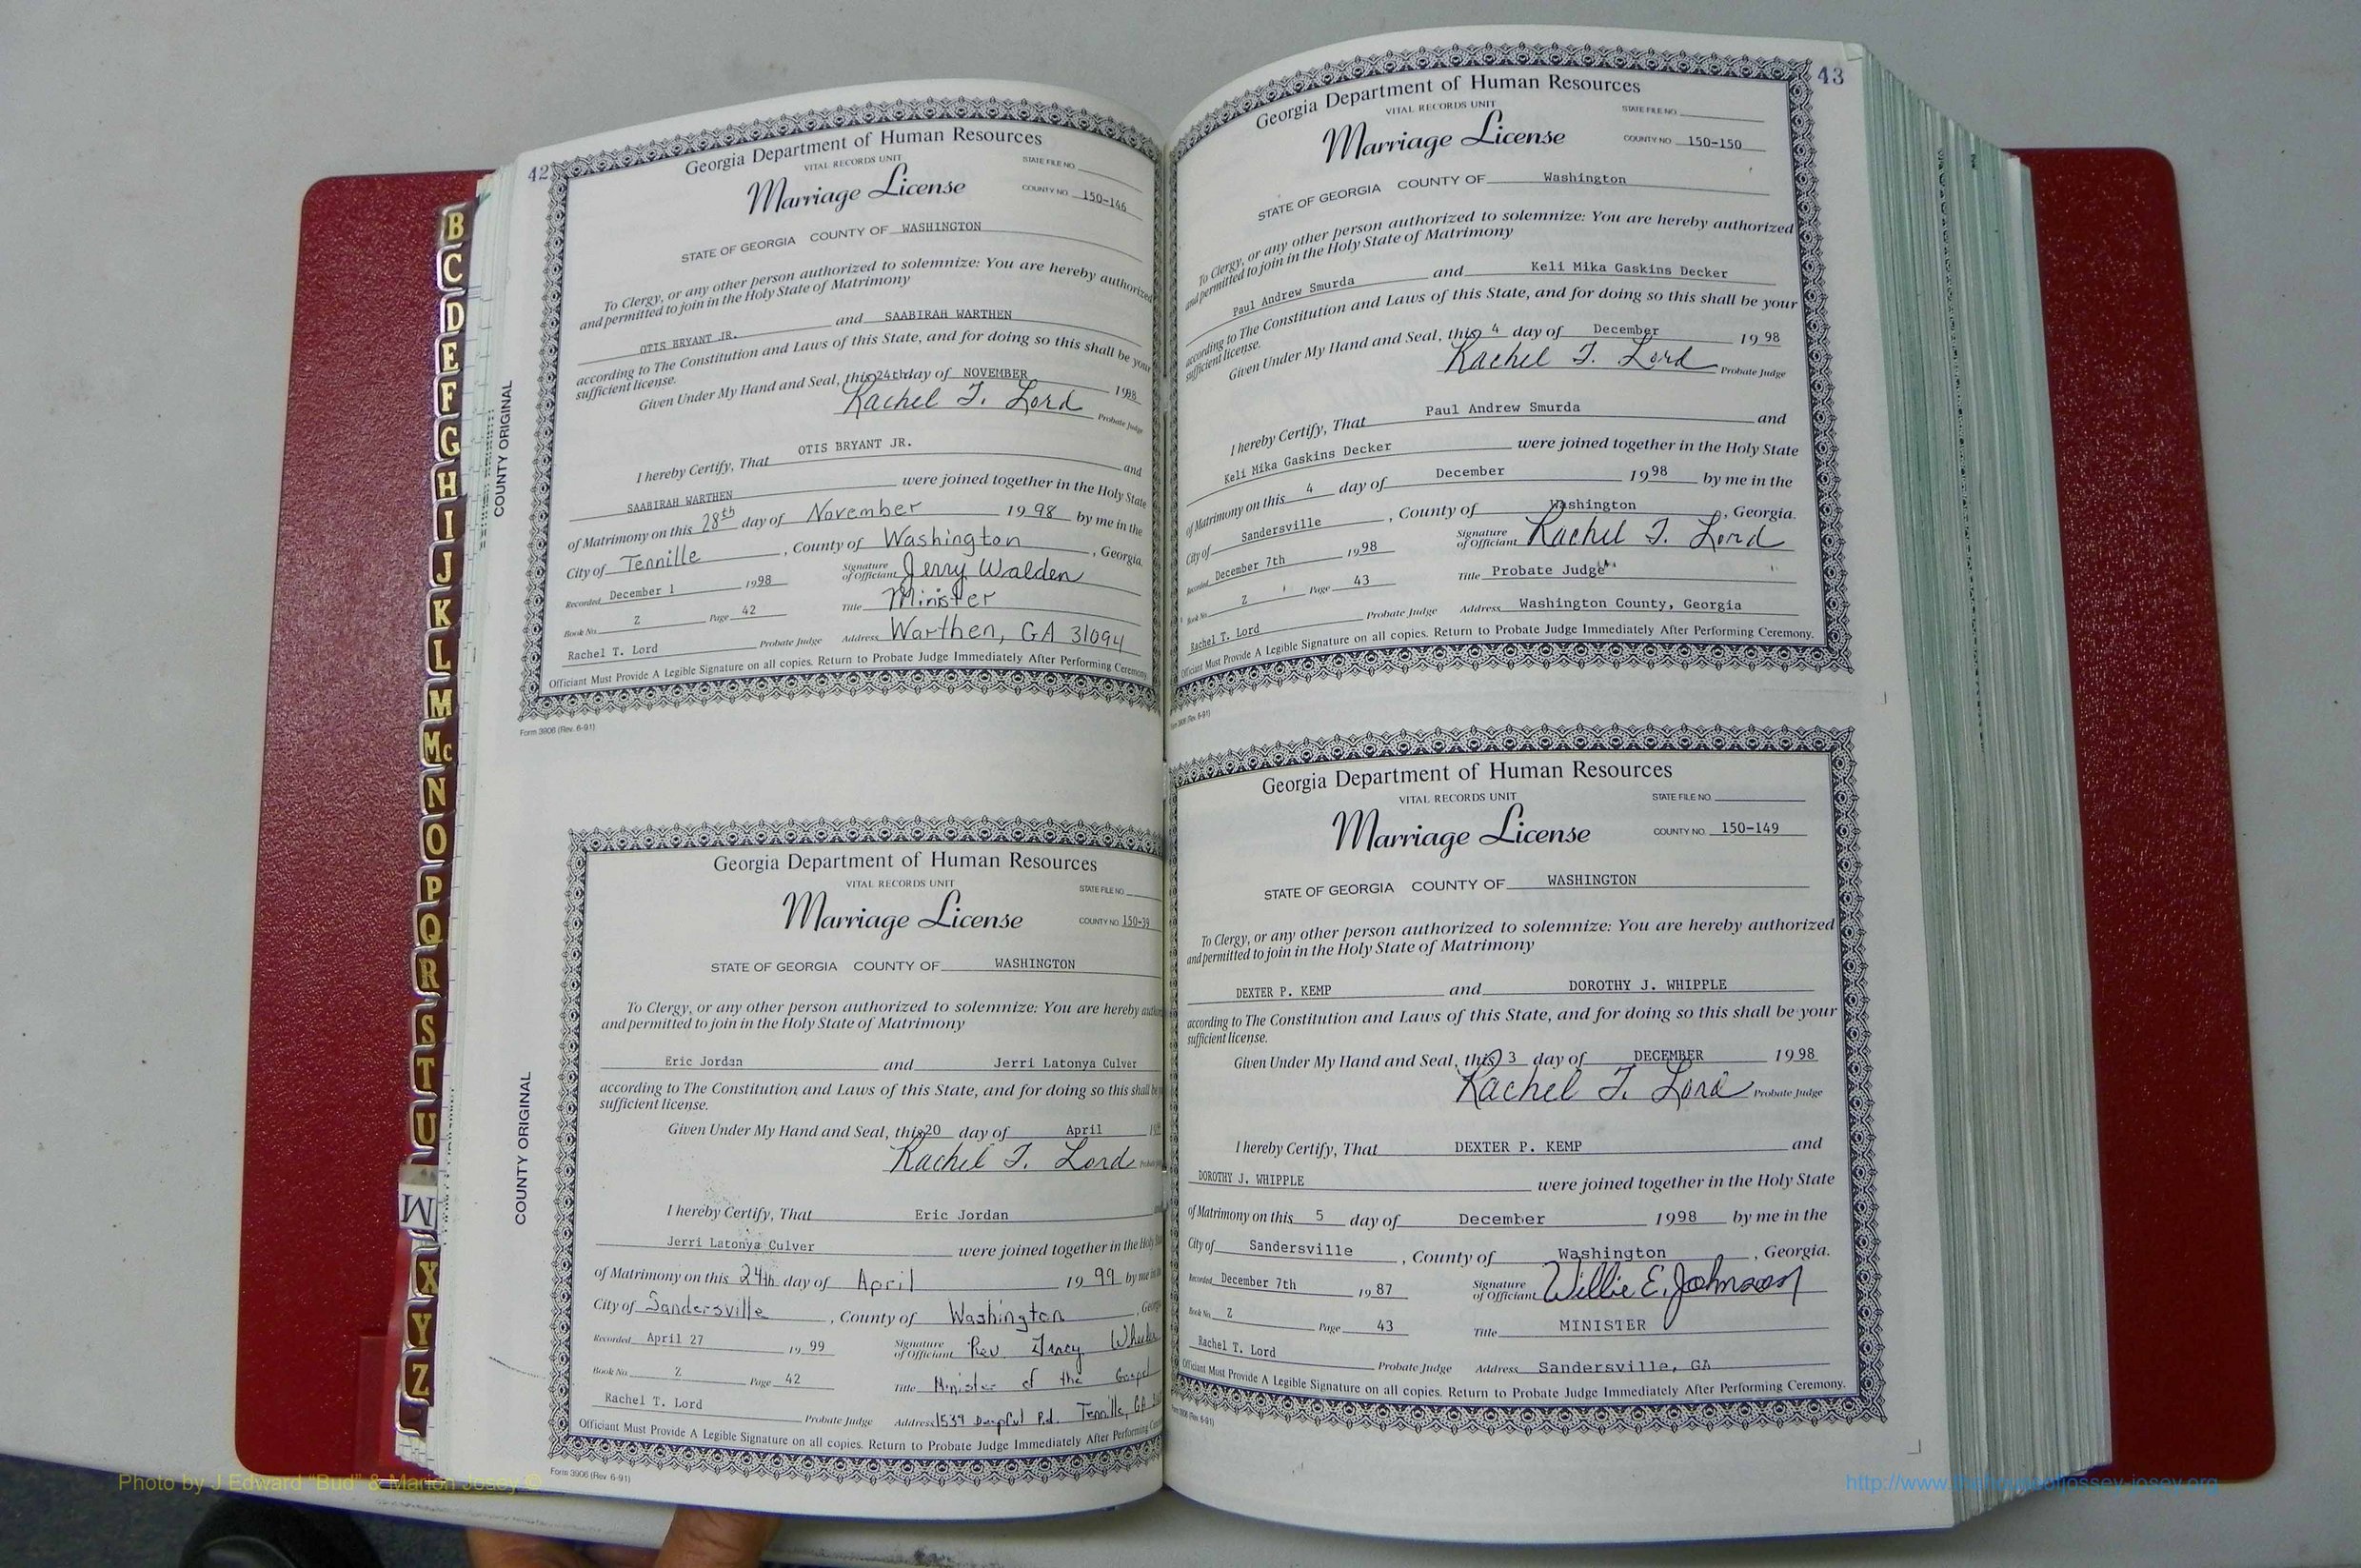 42
Georgia Department of Human Resources
VITAL RECORDS UNIT
STATE FILE NO.
Marriage License
COUNTY NO. 150-146
STATE OF GEORGIA COUNTY OF WASHINGTON
To Clergy, or any other person authorized to solemnize: You are hereby authorized
and permitted to join in the Holy State of Matrimony
OTIS BRYANT JR. and SAABIRAH WARTHEN
according to The Constitution and Laws of this State, and for doing so this shall be your
sufficient license.
Given Under My Hand and Seal, this 24th day of NOVEMBER 1998
Rachel T. Lord Probate Judge
I hereby Certify, That OTIS BRYANT JR. and
SAABIRAH WARTHEN were joined together in the Holy State
of Matrimony on this 28th day of November 1998 by me in the
City of Tennille, County of Washington, Georgia.
Recorded December 1 1998 Signature of Officiant Jerry Walden
Book No. Z Page 42 Title Minister
Rachel T. Lord Probate Judge Address Warthen, GA 31094
Officiant Must Provide A Legible Signature on all copies. Return to Probate Judge Immediately After Performing Ceremony.
Form 3906 (Rev. 6-91)
COUNTY ORIGINAL
Georgia Department of Human Resources
VITAL RECORDS UNIT
STATE FILE NO.
Marriage License
COUNTY NO. 150-39
STATE OF GEORGIA COUNTY OF WASHINGTON
To Clergy, or any other person authorized to solemnize: You are hereby
and permitted to join in the Holy State of Matrimony
Eric Jordan and Jerri Latonya Culver
according to The Constitution and Laws of this State, and for doing so this shall be
sufficient license.
Given Under My Hand and Seal, this 20 day of April
Rachel T. Lord
I hereby Certify, That Eric Jordan
Jerri Latonya Culver were joined together in the Holy
of Matrimony on this 24th day of April 1999 by me in
City of Sandersville, County of Washington,
Recorded April 27 1999 Signature of Officiant Rev Tracy
Book No. Z Page 42 Title Minister of the Gospel
Rachel T. Lord Probate Judge Address 1539 Rd. Tennille, GA
Officiant Must Provide A Legible Signature on all copies. Return to Probate Judge Immediately After Performing
Form 3906 (Rev. 6-91)
COUNTY ORIGINAL
43
Georgia Department of Human Resources
VITAL RECORDS UNIT
STATE FILE NO.
Marriage License
COUNTY NO. 150-150
STATE OF GEORGIA COUNTY OF Washington
To Clergy, or any other person authorized to solemnize: You are hereby authorized
and permitted to join in the Holy State of Matrimony
Paul Andrew Smurda and Keli Mika Gaskins Decker
according to The Constitution and Laws of this State, and for doing so this shall be your
sufficient license.
Given Under My Hand and Seal, this 4 day of December 1998
Rachel T. Lord Probate Judge
I hereby Certify, That Paul Andrew Smurda and
Keli Mika Gaskins Decker were joined together in the Holy State
of Matrimony on this 4 day of December 1998 by me in the
City of Sandersville, County of Washington, Georgia.
Recorded December 7th 1998 Signature of Officiant Rachel T. Lord
Book No. Z Page 43 Title Probate Judge
Rachel T. Lord Probate Judge Address Washington County, Georgia
Officiant Must Provide A Legible Signature on all copies. Return to Probate Judge Immediately After Performing Ceremony.
Form 3906 (Rev. 6-91)
Georgia Department of Human Resources
VITAL RECORDS UNIT
STATE FILE NO.
Marriage License
COUNTY NO. 150-149
STATE OF GEORGIA COUNTY OF WASHINGTON
To Clergy, or any other person authorized to solemnize: You are hereby authorized
and permitted to join in the Holy State of Matrimony
DEXTER P. KEMP and DOROTHY J. WHIPPLE
according to The Constitution and Laws of this State, and for doing so this shall be your
sufficient license.
Given Under My Hand and Seal, this 3 day of DECEMBER 1998
Rachel T. Lord Probate Judge
I hereby Certify, That DEXTER P. KEMP and
DOROTHY J. WHIPPLE were joined together in the Holy State
of Matrimony on this 5 day of December 1998 by me in the
City of Sandersville, County of Washington, Georgia.
Recorded December 7th 1987 Signature of Officiant Willie E. Johnson
Book No. Z Page 43 Title MINISTER
Rachel T. Lord Probate Judge Address Sandersville, GA
Officiant Must Provide A Legible Signature on all copies. Return to Probate Judge Immediately After Performing Ceremony.
Form 3906 (Rev. 6-91)
B
C
D
E
F
G
H
I
J
K
L
M
Mc
N
O
P
Q
R
S
T
U
W
X
Y
Z
Photo by J Edward "Bud" & Marion Josey ©
http://www.thehouseofjossey-josey.org